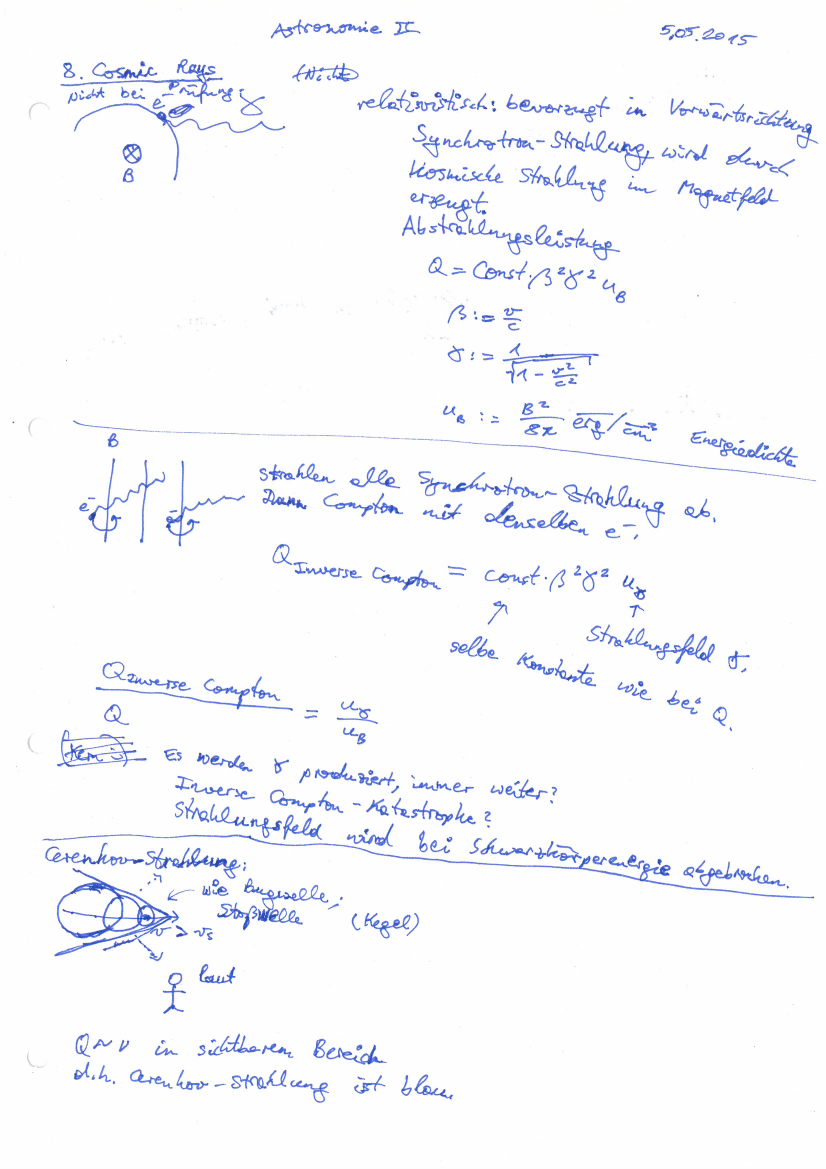 Astronomie II
5.05.2015
8. Cosmic Rays
Nicht bei Prüfung:
e⁻
γ
B
relativistisch: bevorzugt in Vorwärtsrichtung
Synchrotron-Strahlung, wird durch
kosmische Strahlung im Magnetfeld
erzeugt.
Abstrahlungsleistung
Q = Const·β²γ² u_B
β := v/c
γ := 1/√(1 - v²/c²)
u_B := B²/8π erg/cm³ Energiedichte
B
e⁻ e⁻
strahlen alle Synchrotron-Strahlung ab.
Dann Compton mit denselben e⁻.
Q_Inverse Compton = const·β²γ² u_γ
Strahlungsfeld γ.
selbe Konstante wie bei Q.
Q_Inverse Compton / Q = u_γ / u_B
Es werden γ produziert, immer weiter?
Inverse Compton-Katastrophe?
Strahlungsfeld wird bei Schwarzkörperenergie abgebrochen.
Cerenkov-Strahlung:
wie Bugwelle;
Stoßwelle (Kegel)
v > v_s
laut
Q ~ ν in sichtbarem Bereich
d.h. Cerenkov-Strahlung ist blau